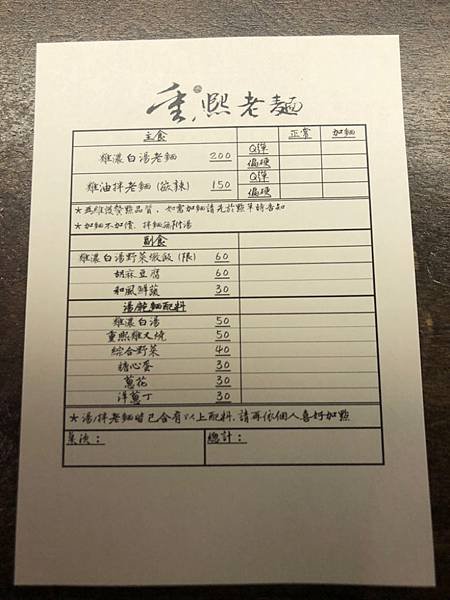 重熙老麵
主食 正常 加麵
雞濃白湯老麵 200 Q彈
偏硬
雞油拌老麵 (微辣) 150 Q彈
偏硬
★為維護餐點品質，如需加麵請先於點單時告知
★加麵不加價，拌麵無附湯
副食
雞濃白湯野菜微飯 (限) 60
胡麻豆腐 60
和風鮮蔬 30
湯/乾麵配料
雞濃白湯 50
重熙雞叉燒 50
綜合野菜 40
糖心蛋 30
蔥花 30
洋蔥丁 30
★湯/拌老麵皆已含有以上配料，請再依個人喜好加點
桌次： 總計：